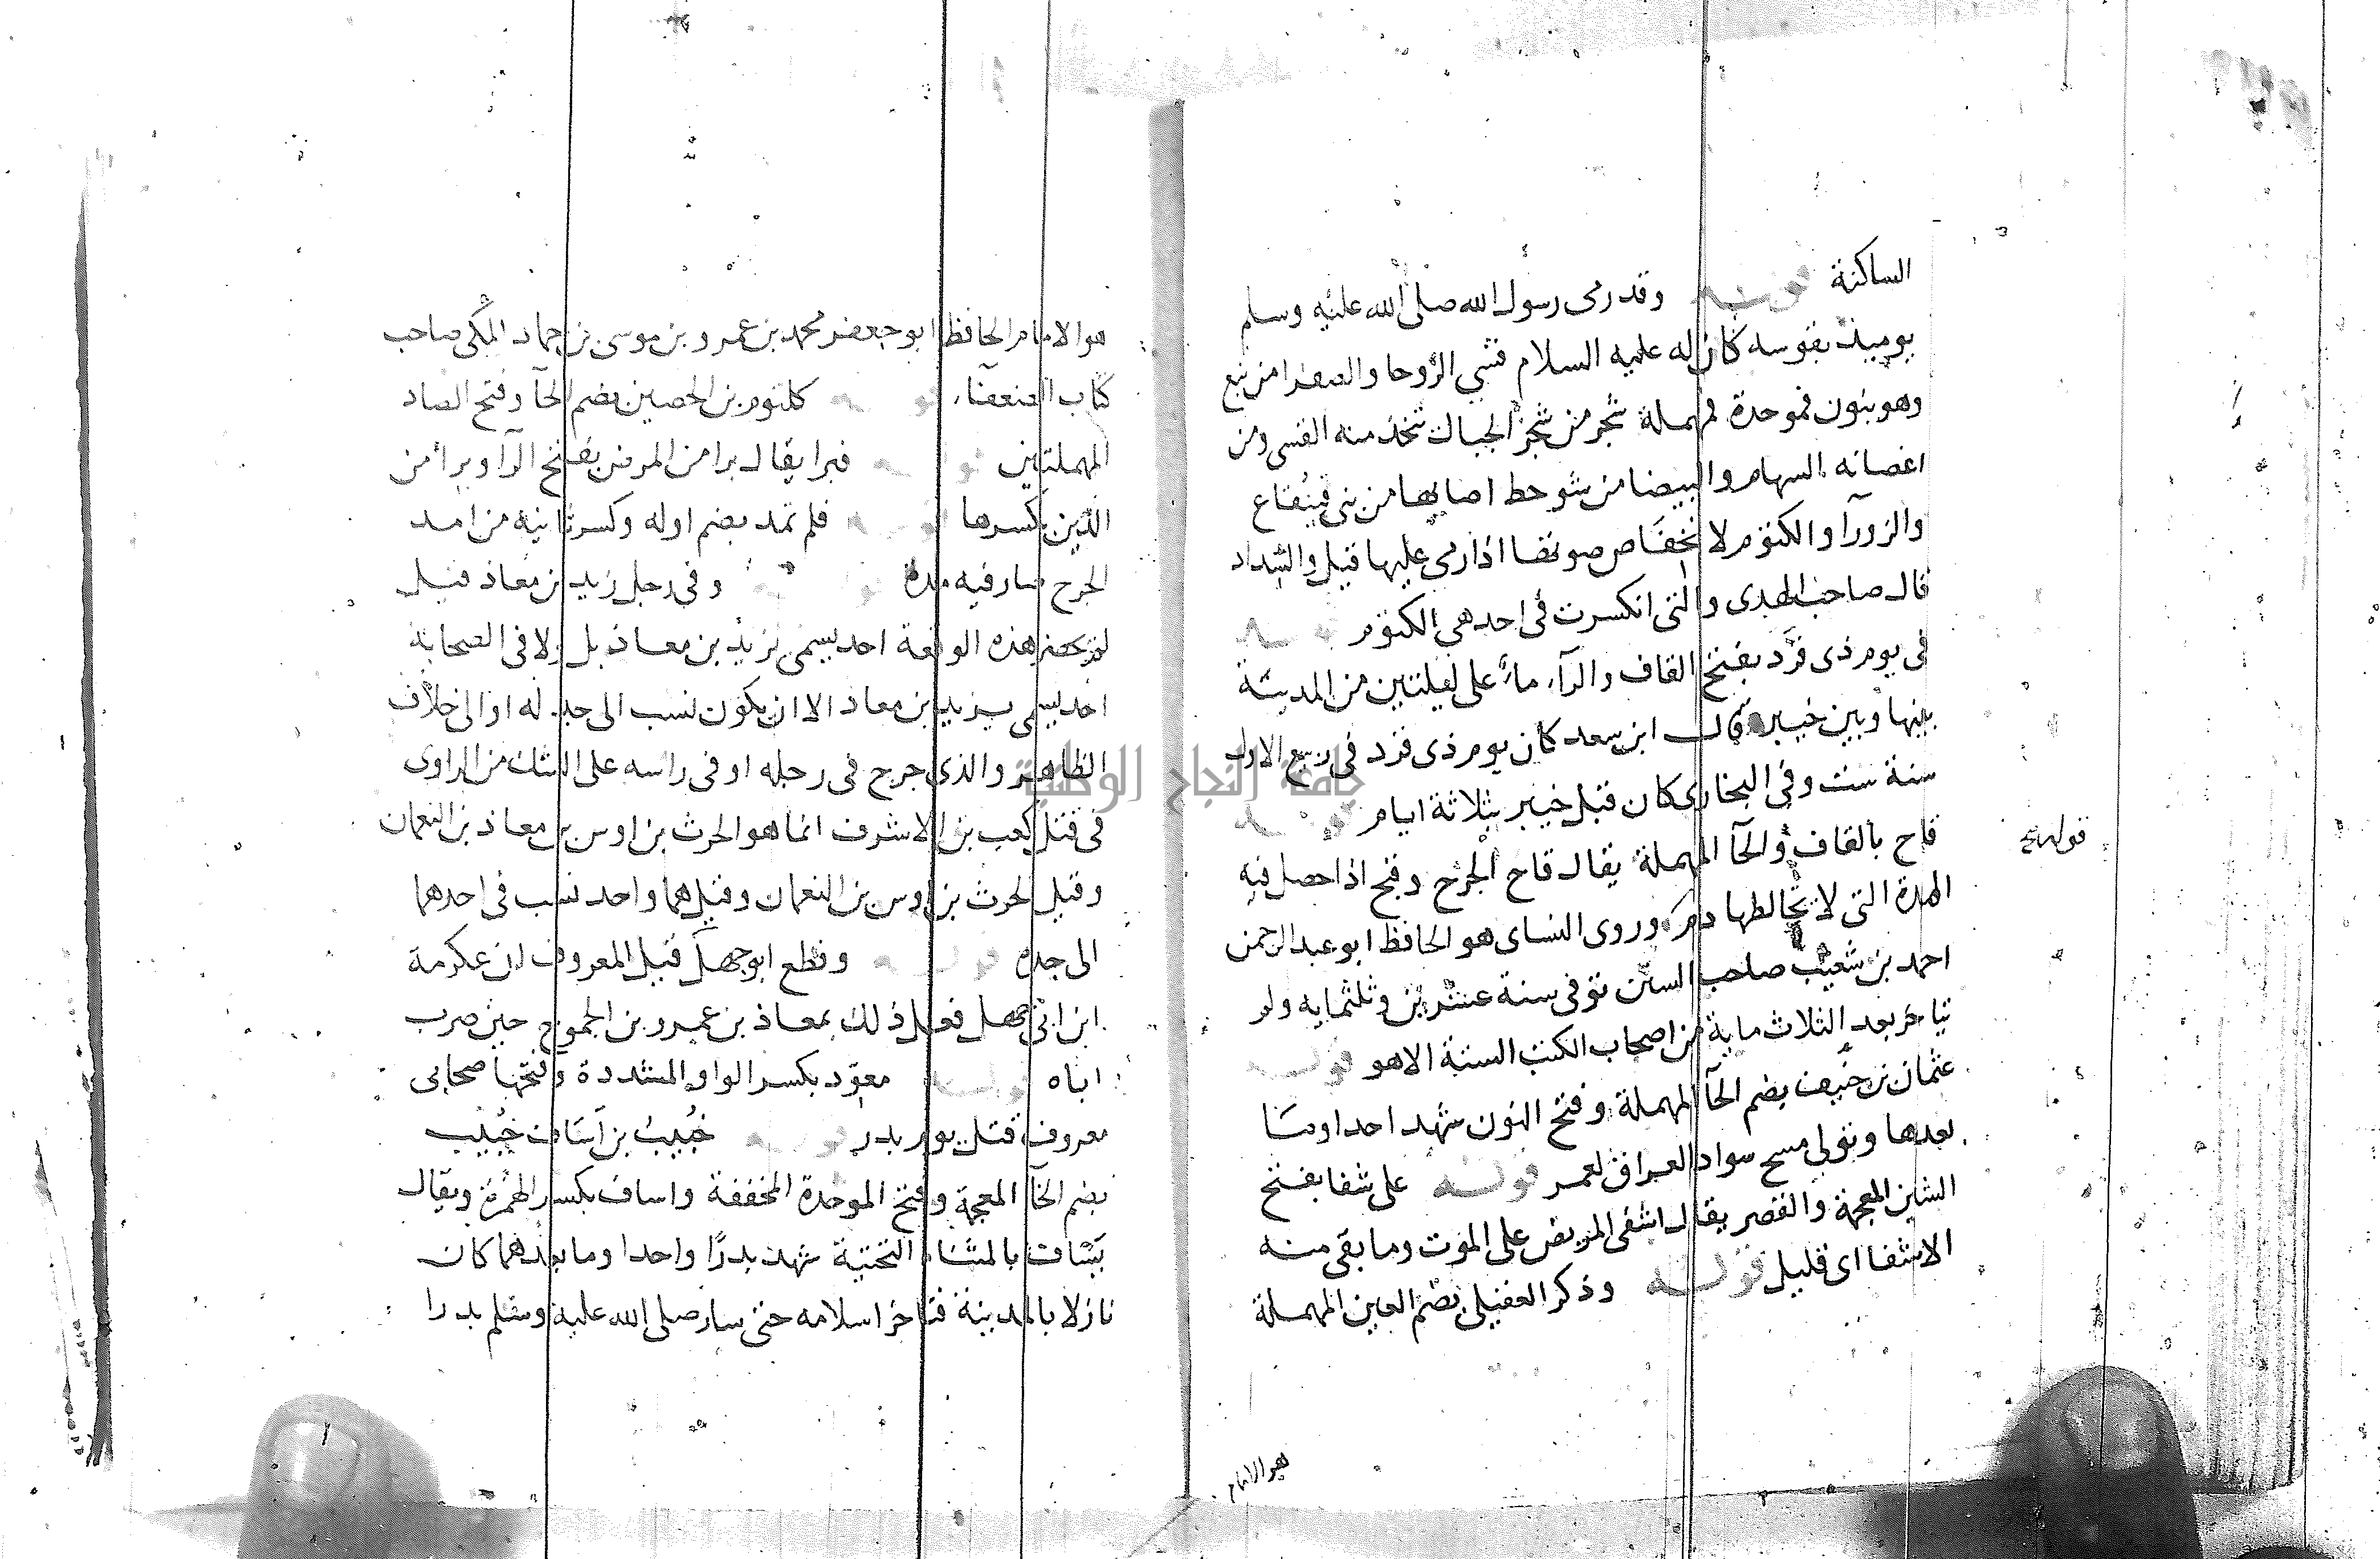 الساكنة قوله وقد رمى رسول الله صلى الله عليه وسلم
يوميذ بقوسه كان له عليه السلام قسي الروحا والصفرا من نبع
وهو بنون فموحدة فمهملة شجر من شجر الجبال تتخذ منه القسى ومن
اغصانه السهام والبيضا من شوحط اصابها من بنى قينقاع
والزورآ والكتوم لانخفاض صوتها اذا رمى عليها قيل والشداد
قال صاحب الهدى والتى انكسرت فى احد هى الكتوم قوله
فى يوم ذى قرد بفتح القاف والرآء ماء على ليلتين من المدينة
بينها وبين خيبر قال ابن سعد كان يوم ذى قرد فى ربيع الاول
سنة ست وفى البخارى كان قبل خيبر بثلاثة ايام قوله
قاح بالقاف والحآ المهملة يقال قاح الجرح وقيح اذا حصل فيه
قوله
المدة التى لا يخالطها دم وروى النساى هو الحافظ ابو عبد الرحمن
احمد بن شعيب صاحب السنن توفى سنة عشرين وثلثمايه ولو
يتاخر بعد الثلاث ماية من اصحاب الكتب الستة الا هو قوله
عثمان بن حنيف بضم الحآ المهملة وفتح النون شهد احدا وما
بعدها وتولى مسح سواد العراق لعمر قوله على شفا بفتح
الشين المعجمة والقصر يقال اشفى المريض على الموت وما بقى منه
الا شفا اى قليل قوله وذكر العقيلى بضم العين المهملة
هو الامام
هو الامام الحافظ ابو جعفر محمد بن عمرو بن موسى بن حماد المكى صاحب
كتاب الضعفآء قوله كلثوم بن الحصين بضم الحآ وفتح الصاد
المهملتين قوله فبرا يقال برا من المرض بفتح الرآ وبرأ من
الدين بكسرها قوله فلم تمد بضم اوله وكسر ثانيه من امد
الجرح صار فيه مدة قوله وفى رجل زيد بن معاذ قيل
لم يحضر هذه الوقعة احد يسمى زيد بن معاذ بل ولا فى الصحابة
احد يسمى يزيد بن معاذ الا ان يكون نسب الى جد له او الى خلاف
الظاهر والذى جرح فى رجله او فى راسه على الشك من الراوى
فى قتل كعب بن الاشرف انما هو الحرث بن اوس بن معاذ بن النعمان
وقيل الحرث بن اوس بن النعمان وقيل هما واحد نسب فى احدهما
الى جده قوله وقطع ابو جهل قيل المعروف ان عكرمة
ابن ابى جهل فعل ذلك بمعاذ بن عمرو بن الجموح حين ضرب
اباه قوله معوذ بكسر الواو المشددة وفتحها صحابى
معروف قتل يوم بدر قوله خبيب بن اساف خبيب
بضم الخآ المعجمة وفتح الموحدة المخففة واساف بكسر الهمزة ويقال
يساف بالمثناه التحتية شهد بدرا واحدا وما بعدهما كان
نازلا بالمدينة فتاخر اسلامه حتى سار صلى الله عليه وسلم بدرا
جامعة النجاح الوطنية